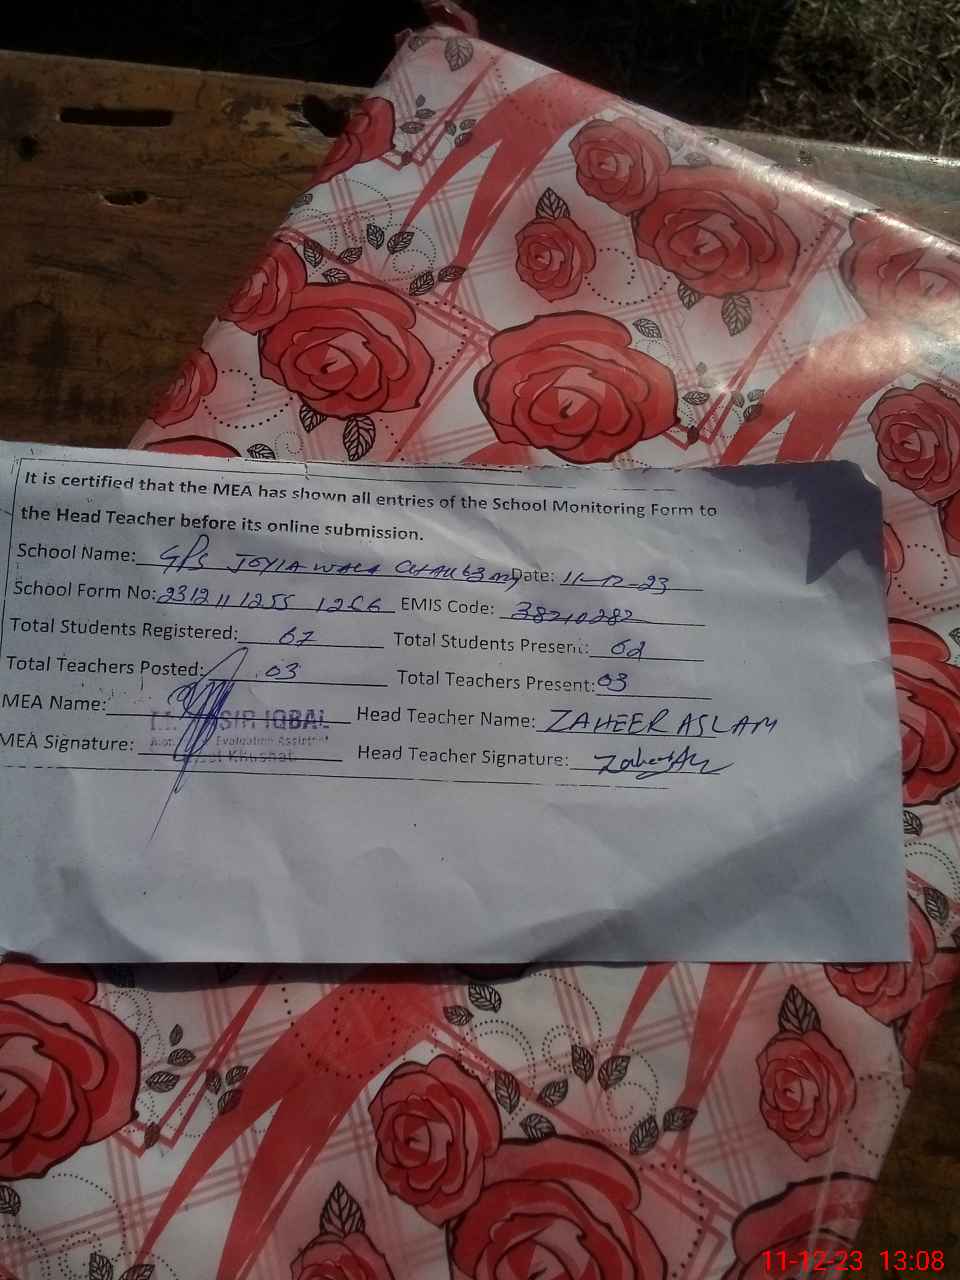 It is certified that the MEA has shown all entries of the School Monitoring Form to
the Head Teacher before its online submission.
School Name: GPS JOYIA WALA Date: 11-12-23
School Form No: EMIS Code: 38210282
Total Students Registered: 67 Total Students Present: 62
Total Teachers Posted: 03 Total Teachers Present: 03
MEA Name: SIR IQBAL Head Teacher Name: ZAHEER ASLAM
Evaluation Assistant
MEA Signature: Khushab Head Teacher Signature:
11-12-23 13:08